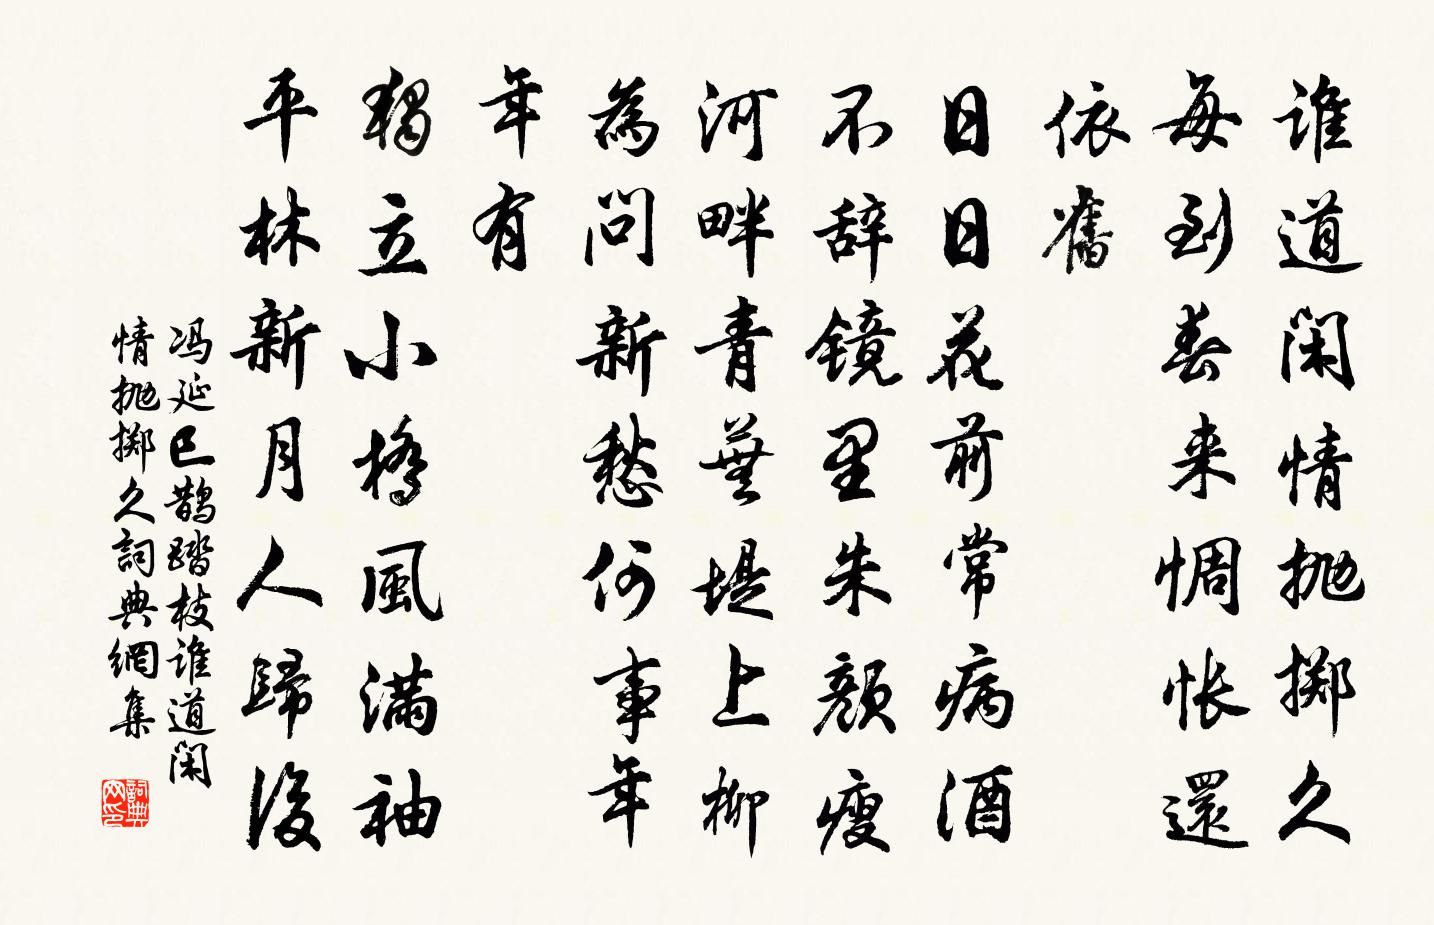 谁道闲情抛掷久
每到春来惆怅还
依舊
日日花前常病酒
不辞镜里朱颜瘦
河畔青蕪堤上柳
為問新愁何事年
年有
獨立小橋風滿袖
平林新月人歸後
冯延巳鹊踏枝谁道闲
情抛掷久詞典網集
詞典
网印